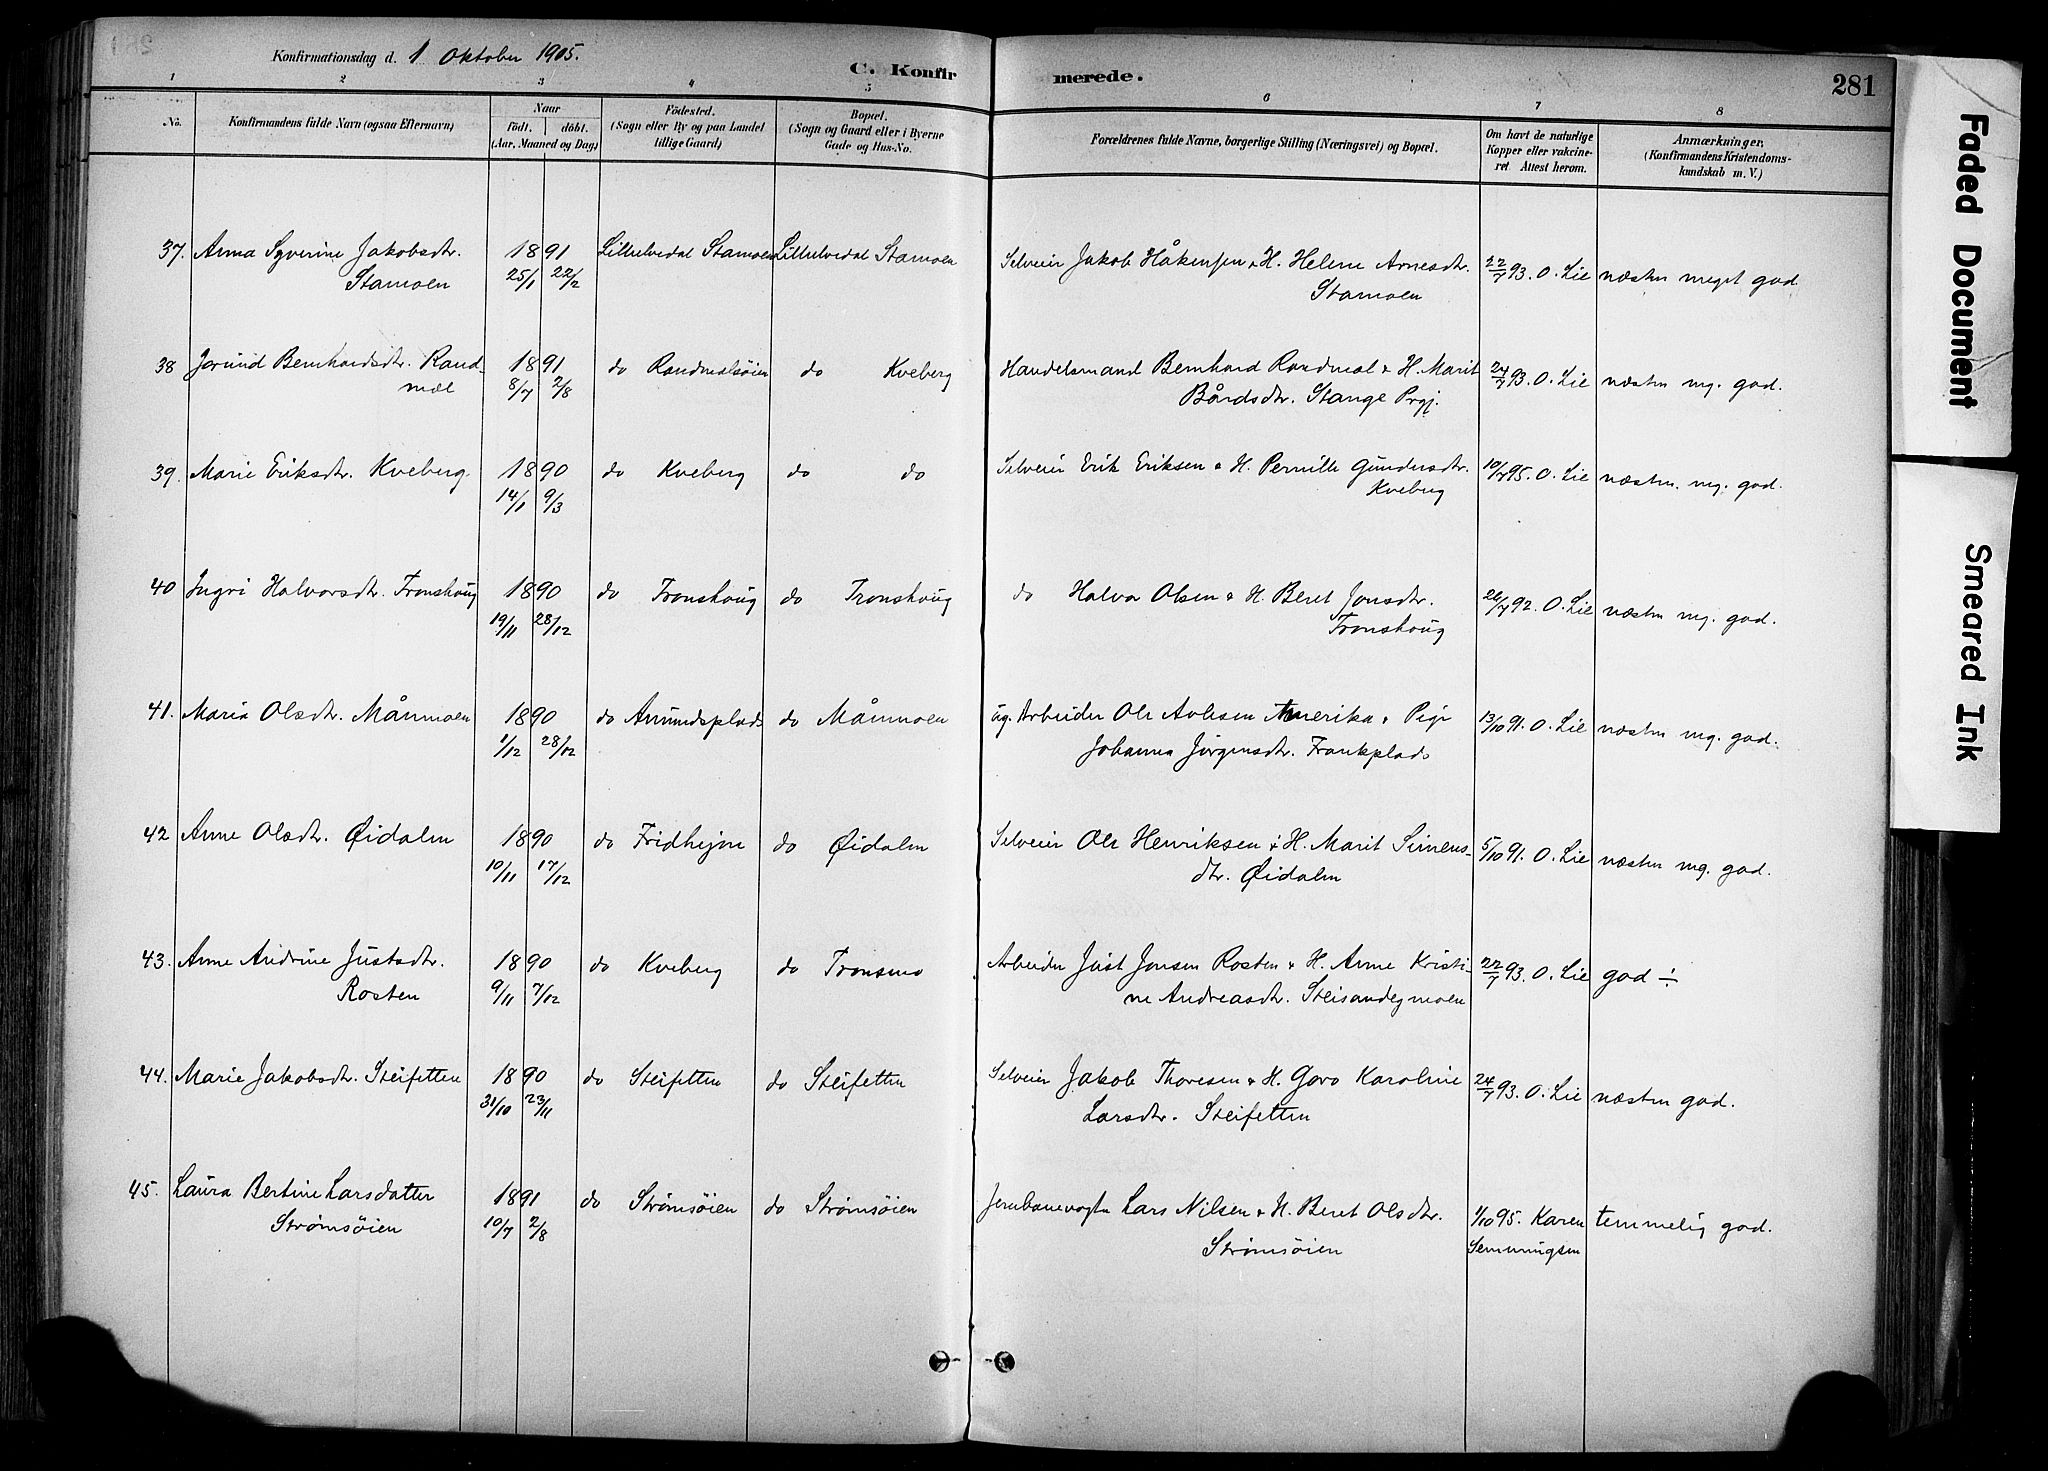 Konfirmationsdag d. 1 Oktober 1905.
C. Konfirmerede.
281
1 2 3 4 5 6 7 8
No.
Konfirmandens fulde Navn (ogsaa Efternavn)
Naar
födt. döbt.
(Aar, Maaned og Dag)
Födested.
(Sogn eller By og paa Landet
tillige Gaard)
Bopæl.
(Sogn og Gaard eller i Byerne
Gade og Hus-No.
Forældrenes fulde Navne, borgerlige Stilling (Næringsvei) og Bopæl.
Om havt de naturlige
Kopper eller vakcine-
ret Attest herom.
Anmærkninger.
(Konfirmandens Kristendoms-
kundskab m. V.)
37. Anna Syverine Jakobsdtr. 1891 Lilleelvedal Stamoen Lilleelvedal Stamoen Selveier Jakob Håkensen & H. Helene Arnesdtr. 22/7 93. O. Lie næsten meget god.
Stamoen 25/1 22/2 Stamoen
38 Jorund Bernhardsdtr. Rand- 1891 do Randmælsøien do Kveberg Handelsmand Bernhard Randmæl & H. Marit 24/7 93. O. Lie næsten mg. god.
mæl 8/7 2/8 Bårdsdtr. Stange Prgj.
39. Marie Eriksdtr. Kveberg. 1890 do Kveberg do do Selveier Erik Eriksen & H. Pernille Gundersdtr. 10/7 95. O. Lie næsten mg. god.
14/1 9/3 Kveberg
40 Ingri Halvorsdtr. Tronshoug 1890 do Tronshoug do Tronshoug do Halvor Olsen & H. Beret Jonsdtr. 26/7 92. O. Lie næsten mg. god.
19/11 28/12 Tronshoug
41. Maria Olsdtr. Månmoen 1890 do Amundsplads do Månmoen ug. Arbeider Ole Avlesen Amerika & Pige 13/10 91. O. Lie næsten mg. god.
1/12 28/12 Johanna Jörgensdtr. Frankplads
42 Anne Olsdtr. Øidalen 1890 do Fridhejm do Øidalen Selveier Ole Henriksen & H. Marit Simens- 5/10 91. O. Lie næsten mg. god.
10/11 17/12 dtr. Øidalen
43. Anne Andrine Justsdtr. 1890 do Kveberg do Tronsmo Arbeider Just Jonsen Rosten & H. Anne Kristi- 22/7 93. O. Lie god ÷
Rosten 9/11 7/12 ne Andreasdtr. Steisandegmoen
44. Marie Jakobsdtr. Steifetten 1890 do Steifetten do Steifetten Selveier Jakob Thoresen & H. Goro Karoline 24/7 93. O. Lie næsten god.
31/10 23/11 Larsdtr. Steifetten
45. Laura Bertine Larsdatter 1891 do Strømsøien do Strømsøien Jernbanevogter Lars Nilsen & H. Beret Olsdtr. 1/10 95. Karen temmelig god.
Strømsøien 10/7 2/8 Strømsøien Semmingsen
Faded Document
Smeared Ink